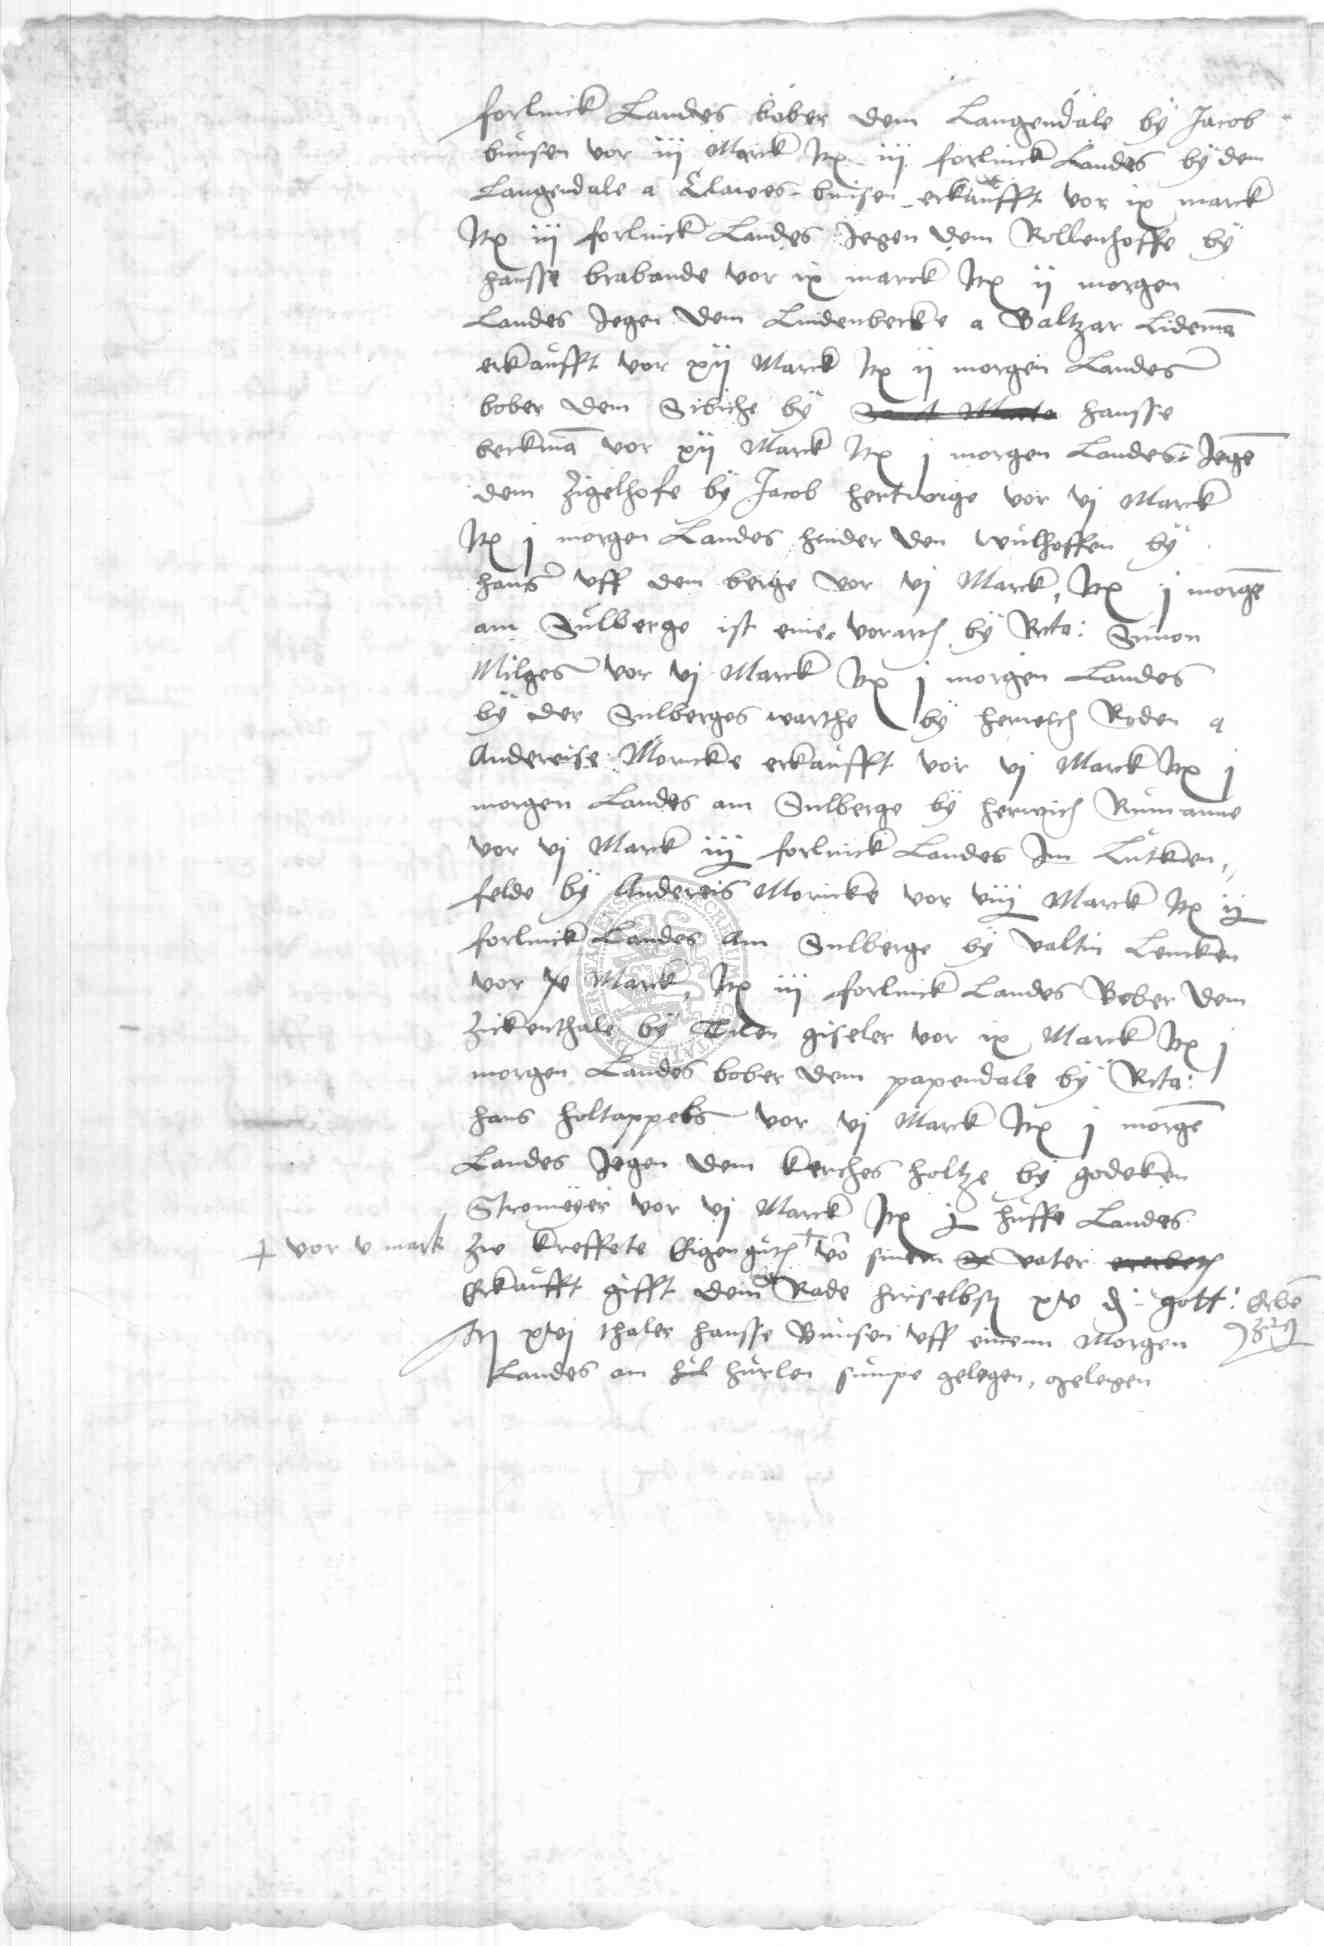 forlinck Landes bober dem Langendale by Jacob
bunsen vor iij Marck Itz iij forlinck Landes by dem
Langendale a Clawes bunsen erkaufft vor ix marck
Itz iij forlinck Landes Jegen dem Rollenhoffe by
hansse brabande vor ix marck Itz ij morgen
Landes Jegen dem Lindenbercke a Baltzar Lidemā
erkaufft vor xij Marck Itz ij morgen Landes
bober dem Sibiche by hansse
berkmā vor xij Marck Itz j morgen Landes Jegē
dem Zigelhofe by Jacob hertwige vor vj Marck
Itz j morgen Landes hinder den wulhoffen by
hans vff dem berge vor vj Marck, Itz j morgē
am Sulberge ist eine vorartz by Rcta: Simon
Milges vor vj Marck Itz j morgen Landes
by der Sulberges warthe by henrich Roden a
Andereise Moricke erkaufft vor vj Marck Itz j
morgen Landes am Sulberge by henrich Rumanne
vor vj Marck iij forlinck Landes Im Lutken
felde by Andereis Moricke vor viij Marck Itz ij
forlinck Landes Am Sulberge by valtin Lencken
vor Marck, Itz iij forlinck Landes Bober dem
Zickenthale by Tilen giseler vor ix Marck Itz j
morgen Landes bober dem papendale by Rcta:
hans holtappels vor vj Marck Itz j morgē
Landes Jegen dem kerches holtze by godeken
Stromeyer vor vj Marck Itz j huffe Landes
vor v mark Zw kreffete Eigenguth vō sinem vater
Erkaufft gifft dem Rade hirselbst xv gott: Erbē
Itz xvj thaler hansse Bunsen vff einem Morgen
Landes am hurlen sumpe gelegen, gelegen